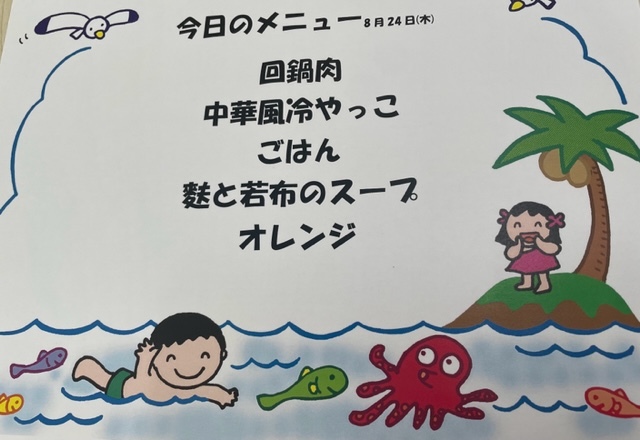 今日のメニュー8月24日(木)
回鍋肉
中華風冷やっこ
ごはん
麩と若布のスープ
オレンジ